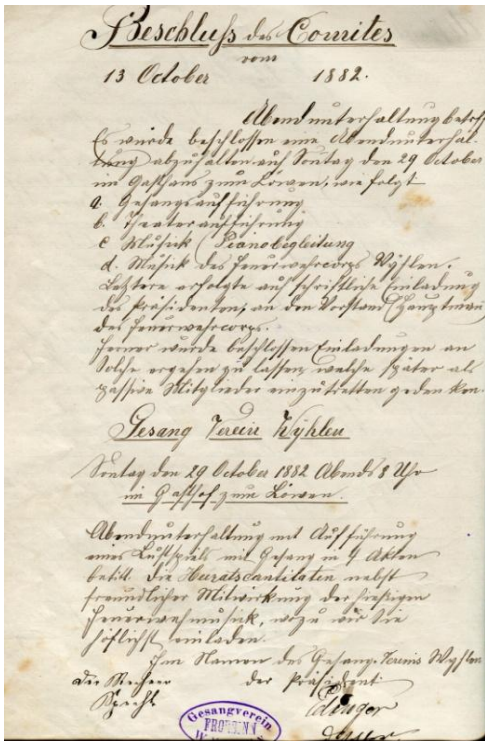 Beschluss des Comites
vom
13 October 1882.
Abendunterhaltung betreff
Es wurde beschlossen eine Abendunterhal-
tung abzuhalten auf Sontag den 29 October
im Gasthaus zum Löwen, wie folgt
a. Gesangsaufführung
b. Theateraufführung
c Musick (Pianobegleitung
d. Musik des Feuerwehrcorps Wyhlen.
Letztere erfolgte auf schriftliche Einladung
des Präsidenten, an den Vorstand (Hauptman)
des Feuerwehrcorps.
Ferner wurde beschlossen Einladungen an
Solche ergehen zu lassen, welche später als
passive Mitglieder einzutretten gedenken.
Gesang Verein Wyhlen
Sontag den 29 October 1882 Abends 8 Uhr
im Gasthof zum Löwen.
Abendunterhaltung mit Aufführung
eines Lustspiels mit Gesang in 4 Akten
betitt. Die Heiratscantitaten nebst
freundlicher Mitwirkung der hiesigen
Feuerwehrmusick, wozu wir Sie
höflichst einladen.
Im Namen des Gesang-Vereins Wyhlen
Die Rechner der Präsident
Specht Edinger
Gesangverein
FROHSINN